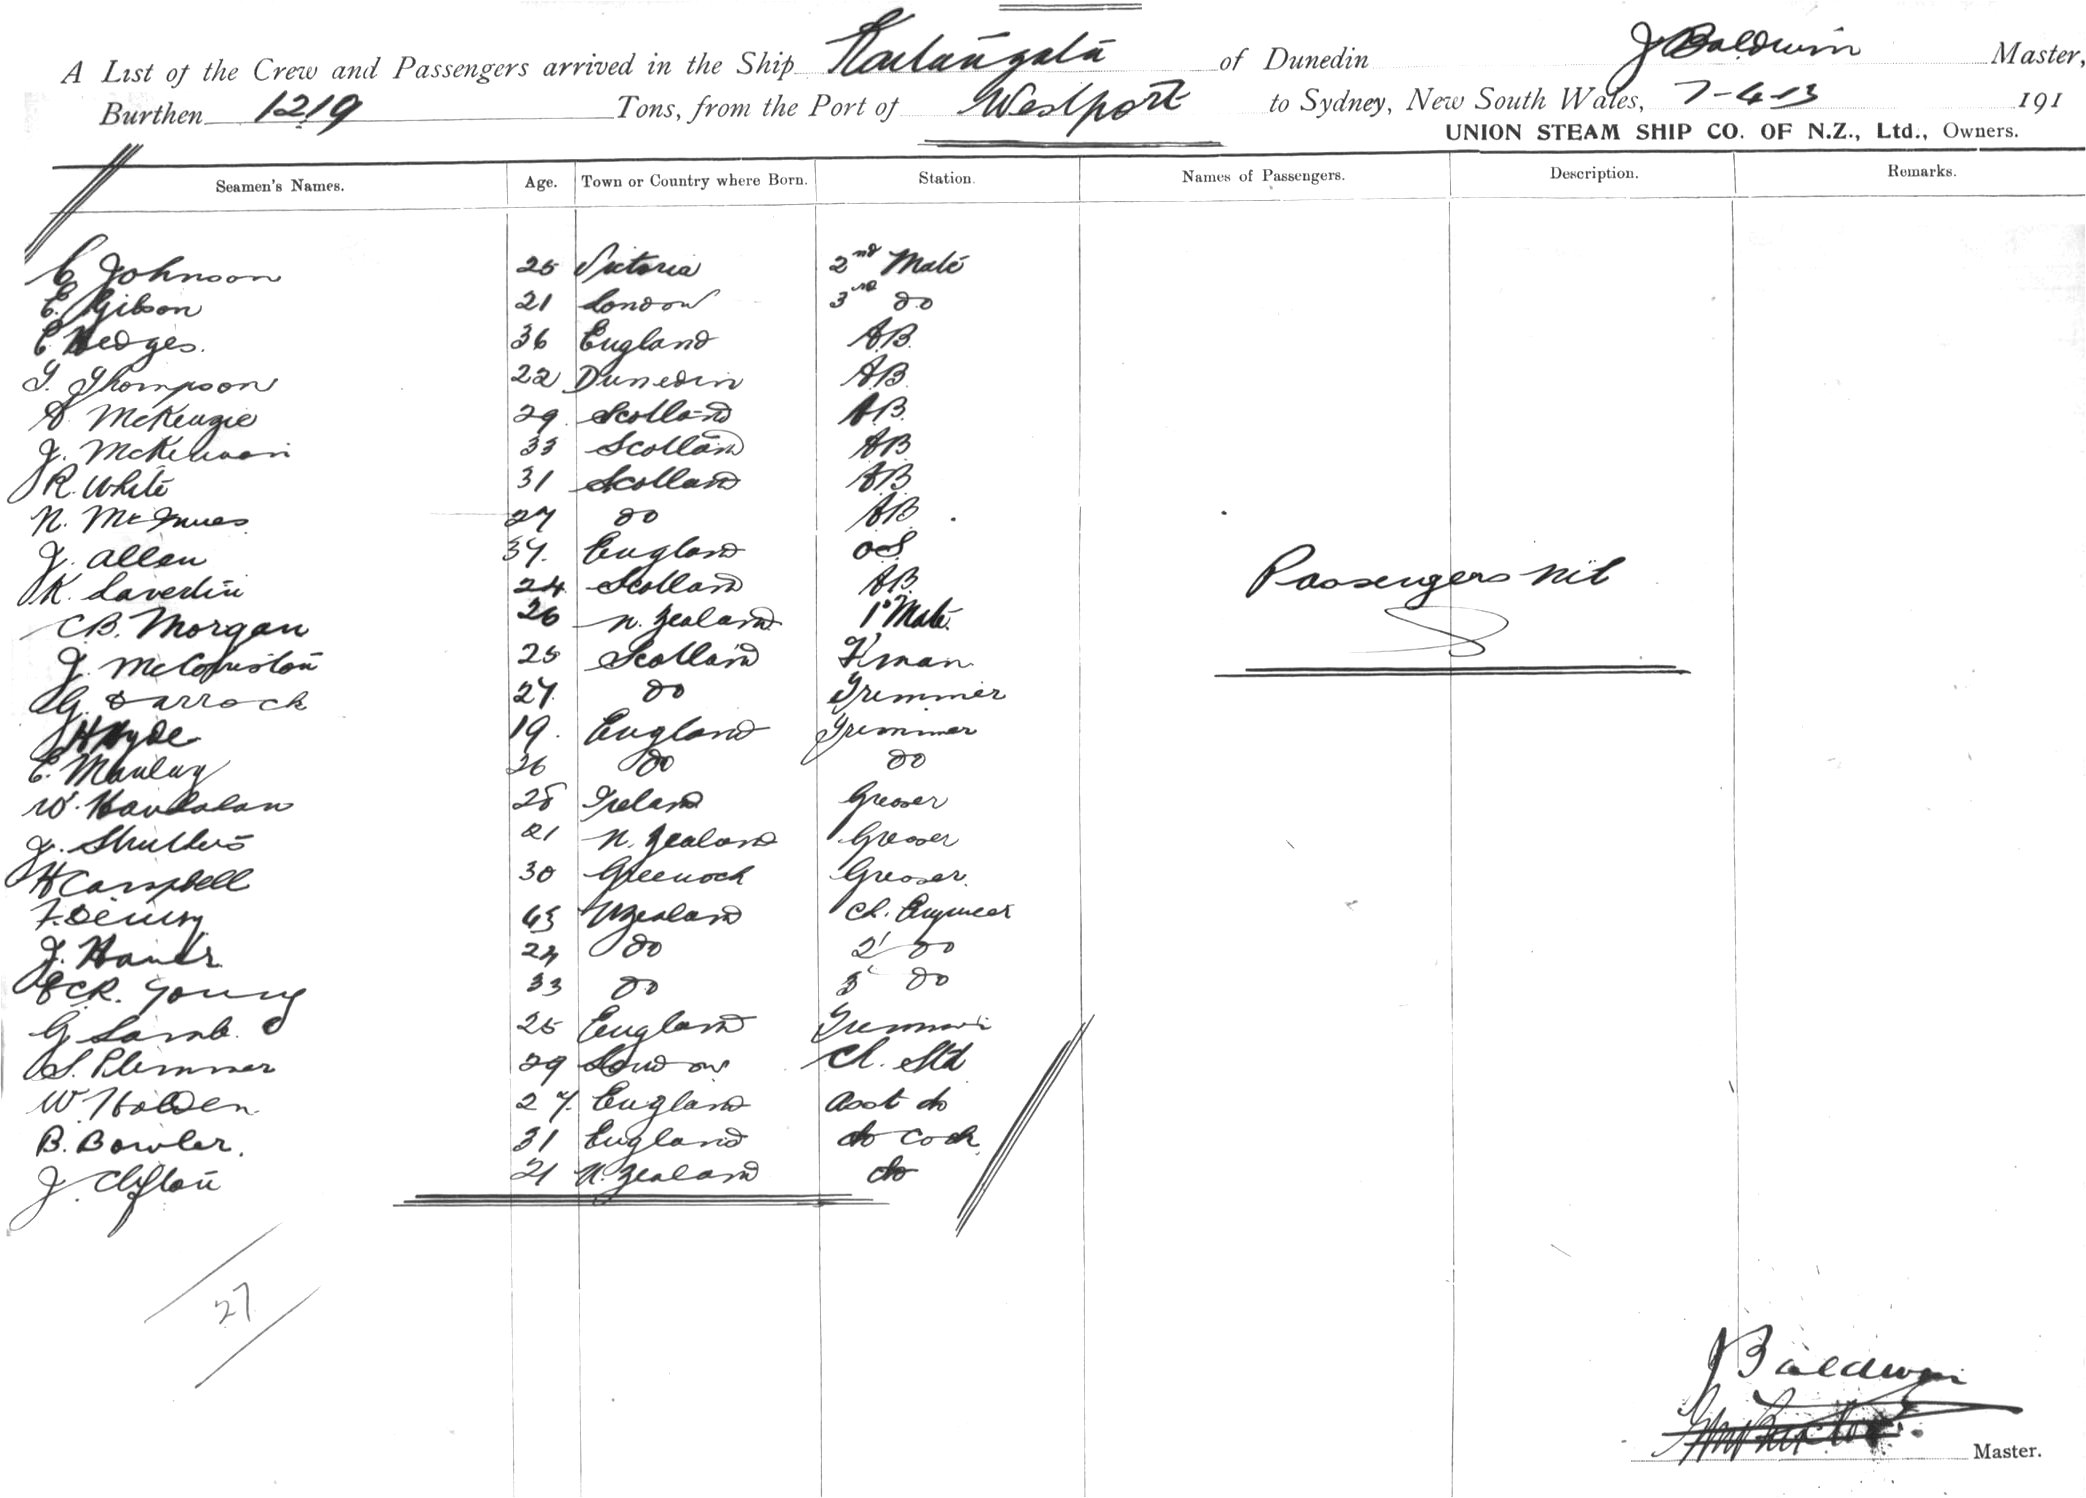 A List of the Crew and Passengers arrived in the Ship Kaitangata of Dunedin J Baldwin Master,
Burthen 1219 Tons, from the Port of Westport to Sydney, New South Wales, 7-4-13 191
UNION STEAM SHIP CO. OF N.Z., Ltd., Owners.
Seamen's Names. Age. Town or Country where Born. Station. Names of Passengers. Description. Remarks.
C Johnson 25 Victoria 2nd Mate
E. Gibson 21 London 3rd do
C Hedges. 36 England AB
T. Thompson 22 Dunedin AB
A McKenzie 29 Scotland AB
J. McKinnon 33 Scotland AB
R. White 31 Scotland AB
N. McInnes 27 do AB
J. Allen 37. England OS
K. 24 Scotland AB
CB. Morgan 26 N. Zealand 1st Mate
J. 25 Scotland F'man
G. Darrock 27. do Trimmer
H Hyde 19. England Trimmer
E. Manley 26 do do
W. 28 Ireland Greaser
J. Struthers 21 N. Zealand Greaser
H Campbell 30 Greenock Greaser.
F. 43 N Zealand Ch. Engineer
J. 24 do 2' do
ECR. Young 33 do 3' do
G Lamb. 25 England Trimmer
S. Plimmer 29 London Ch. Std
W Holden 27. England Asst do
B. Bowler. 31 England do Cook
J. Clifton 21 N. Zealand do
Passengers nil
27
J Baldwin
Master.